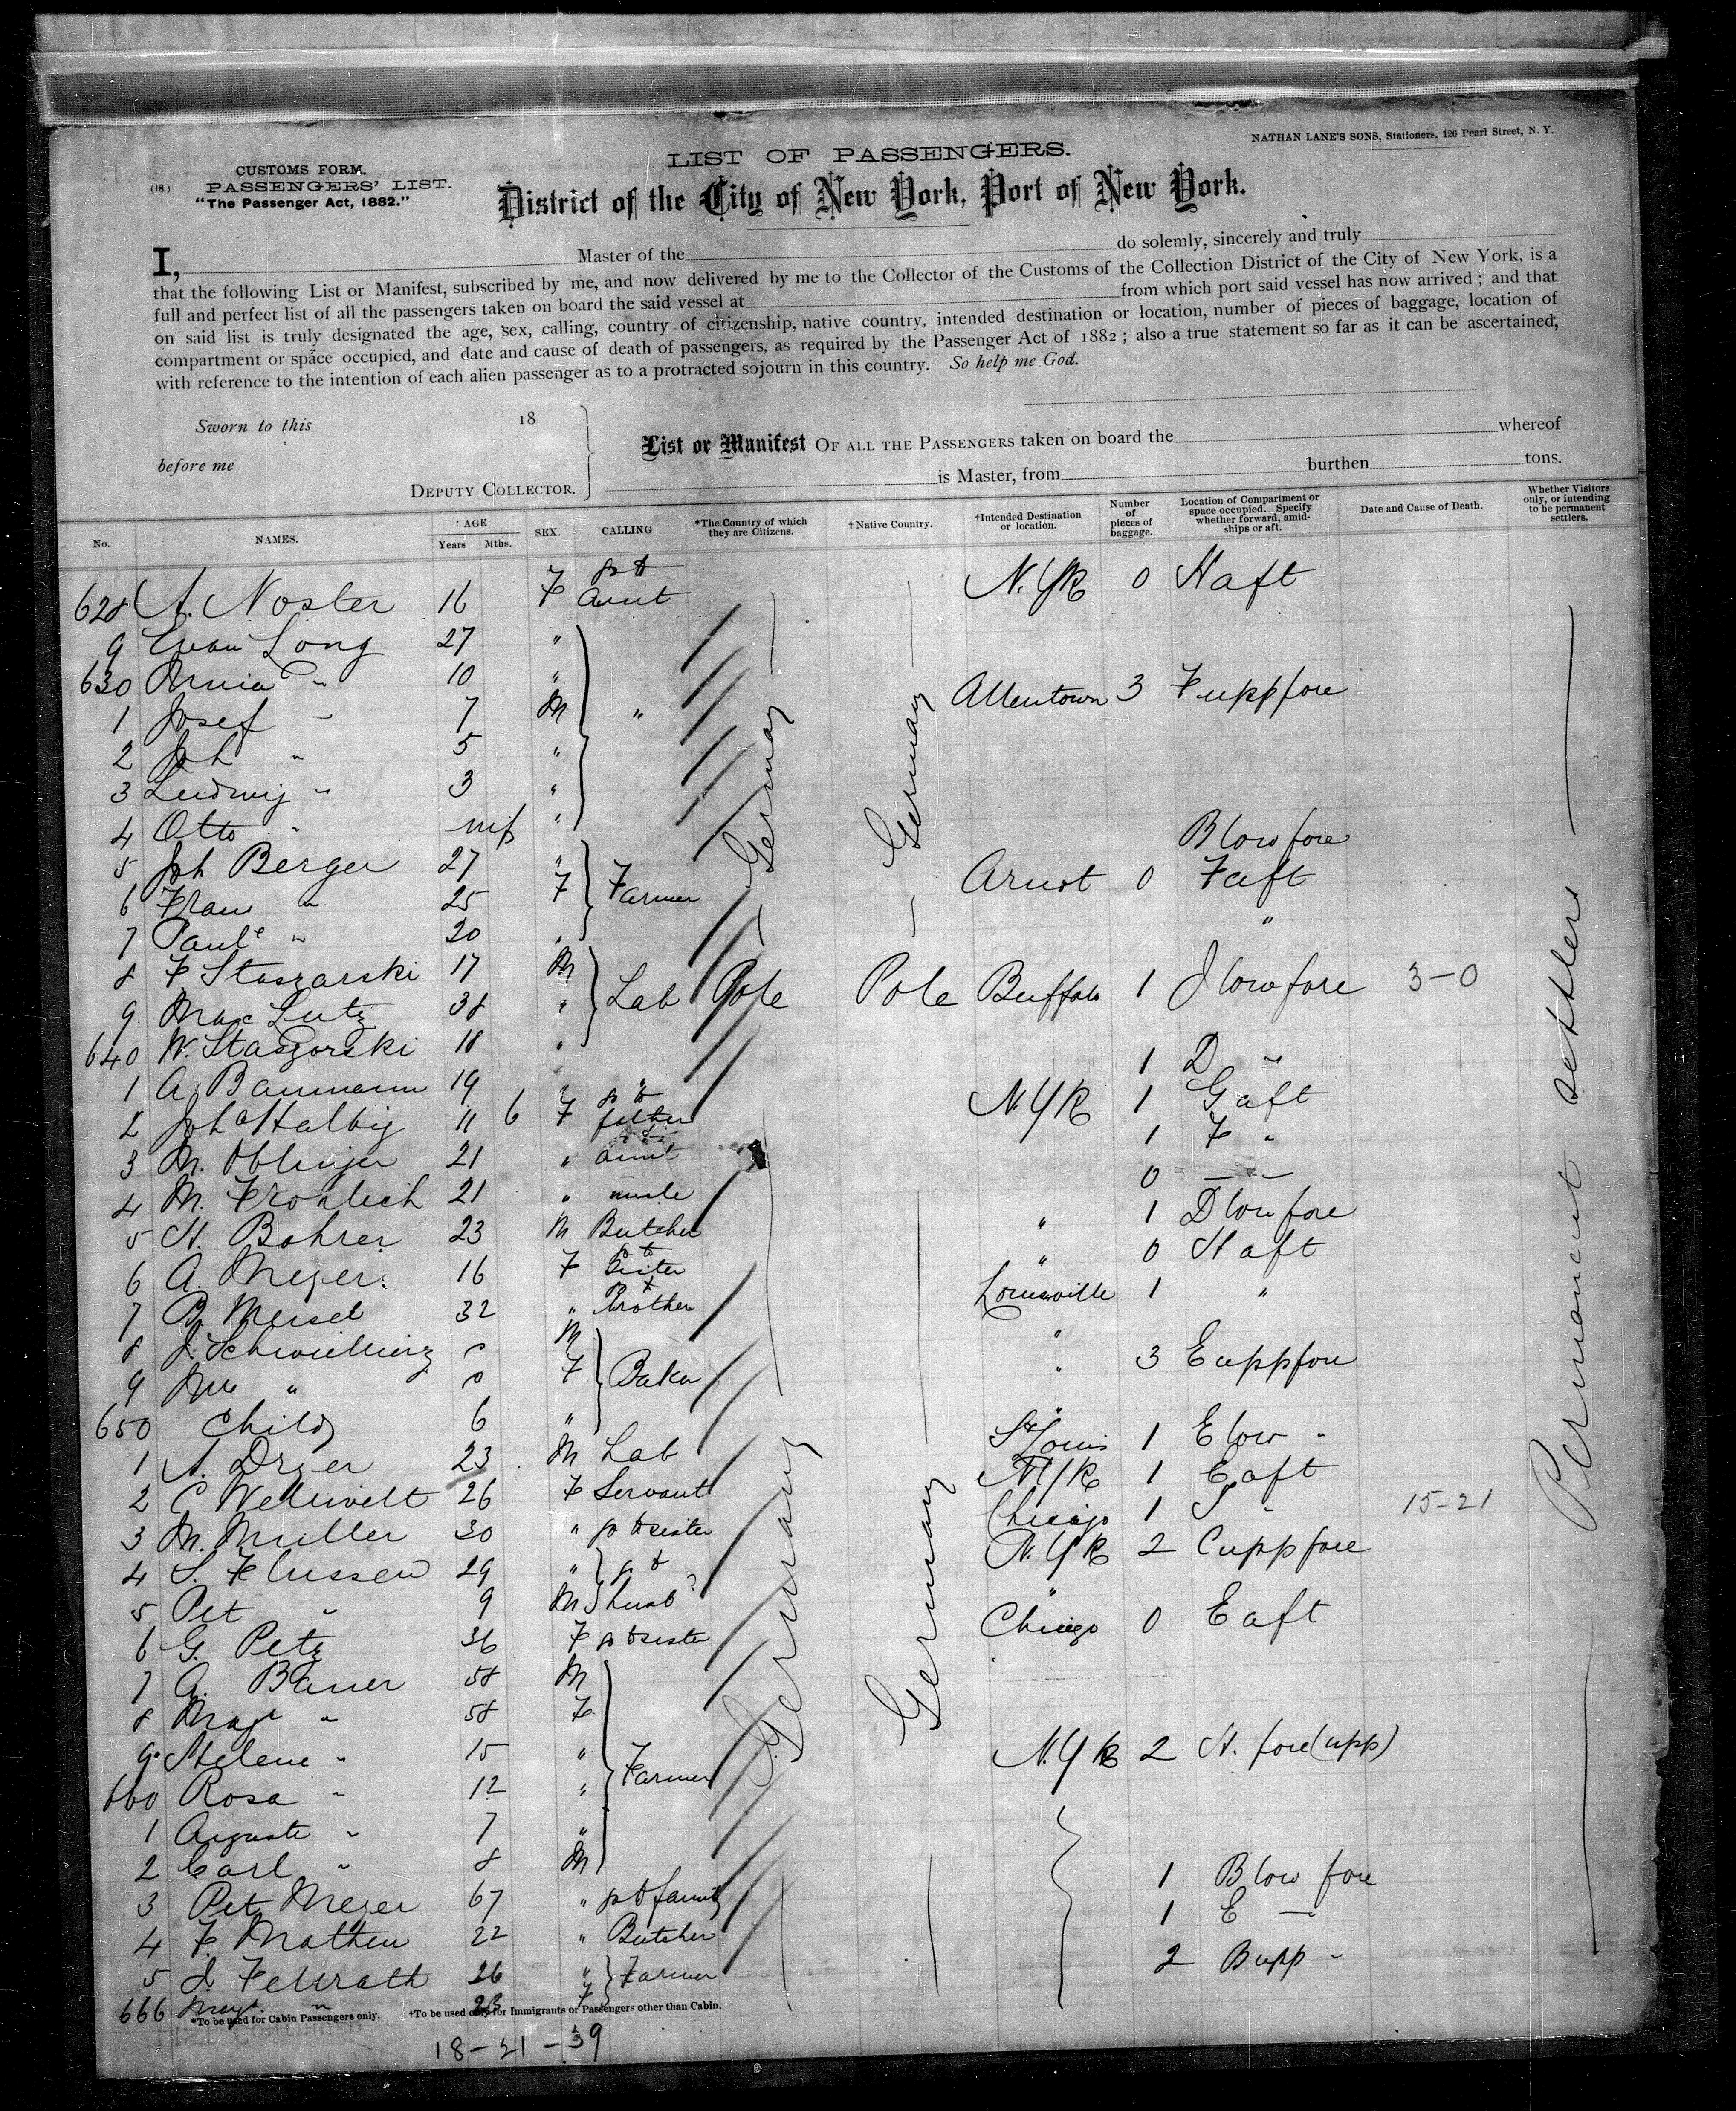 NATHAN LANE'S SONS, Stationers, 126 Pearl Street, N. Y.
LIST OF PASSENGERS.
(18.) CUSTOMS FORM.
PASSENGERS' LIST.
"The Passenger Act, 1882."
District of the City of New York, Port of New York.
I, Master of the do solemly, sincerely and truly
that the following List or Manifest, subscribed by me, and now delivered by me to the Collector of the Customs of the Collection District of the City of New York, is a
full and perfect list of all the passengers taken on board the said vessel at from which port said vessel has now arrived ; and that
on said list is truly designated the age, sex, calling, country of citizenship, native country, intended destination or location, number of pieces of baggage, location of
compartment or space occupied, and date and cause of death of passengers, as required by the Passenger Act of 1882 ; also a true statement so far as it can be ascertained,
with reference to the intention of each alien passenger as to a protracted sojourn in this country. So help me God.
Sworn to this 18
before me
DEPUTY COLLECTOR.
List or Manifest OF ALL THE PASSENGERS taken on board the whereof
is Master, from burthen tons.
No. NAMES. AGE Years Mths. SEX. CALLING *The Country of which they are Citizens. † Native Country. †Intended Destination or location. Number of pieces of baggage. Location of Compartment or space occupied. Specify whether forward, amidships or aft. Date and Cause of Death. Whether Visitors only, or intending to be permanent settlers.
628 A. Noster 16 F Aunt N.Y.K 0 H aft
9 Long 27 "
630 " 10 " Allentown 3 F upp fore
1 Josef " 7 M "
2 Joh " 5 "
3 Ludwig " 3 "
4 Otto " inf " B low fore
5 Joh Berger 27 " Farmer Arnot 0 F aft
6 Frau " 25 F
7 " 20 " "
8 F Staszarski 17 M Lab Pole Pole Buffalo 1 J low fore 3-0
9 Max Lutz 38 "
640 W. Staszorski 18 " 1 D "
1 A Baumann 19 " N.Y.K 1 G aft
2 Joh Halbig 11 6 F father 1 F "
3 M. Oblinger 21 " aunt 0
4 M. Frohlich 21 " uncle 1 D low fore
5 H. Bohrer 23 M Butcher " 0 H aft
6 A. Meyer 16 F Sister "
7 B. Meisel 32 " brother Louisville 1 "
8 M "
9 " F Baker " 3 E upp fore
650 Child 6 " "
1 A. Dryer 23 M Lab St Louis 1 E low "
2 C 26 F Servant N.Y.K 1 E aft
3 M. Muller 30 " sister Chicago 1 " 15-21
4 S. Flussen 29 " N.Y.K 2 C upp fore
5 Pet " 9 M husb "
6 G. Petz 36 F sister Chicago 0 E aft
7 G. Bauer 58 M
8 " 58 F
9 Helene " 15 " Farmer N.Y.K 2 H. fore (upp)
660 Rosa " 12 "
1 Auguste " 7 "
2 Carl " 8 M
3 Pet Meyer 67 " 1 B low fore
4 F. Matheu 22 " Butcher 1 E
5 J. Fellrath 26 " Farmer 2 B upp "
666 " 23 F
Germany
Germany
Germany
Germany
Permanent settlers
*To be used for Cabin Passengers only. †To be used only for Immigrants or Passengers other than Cabin.
18-21-39